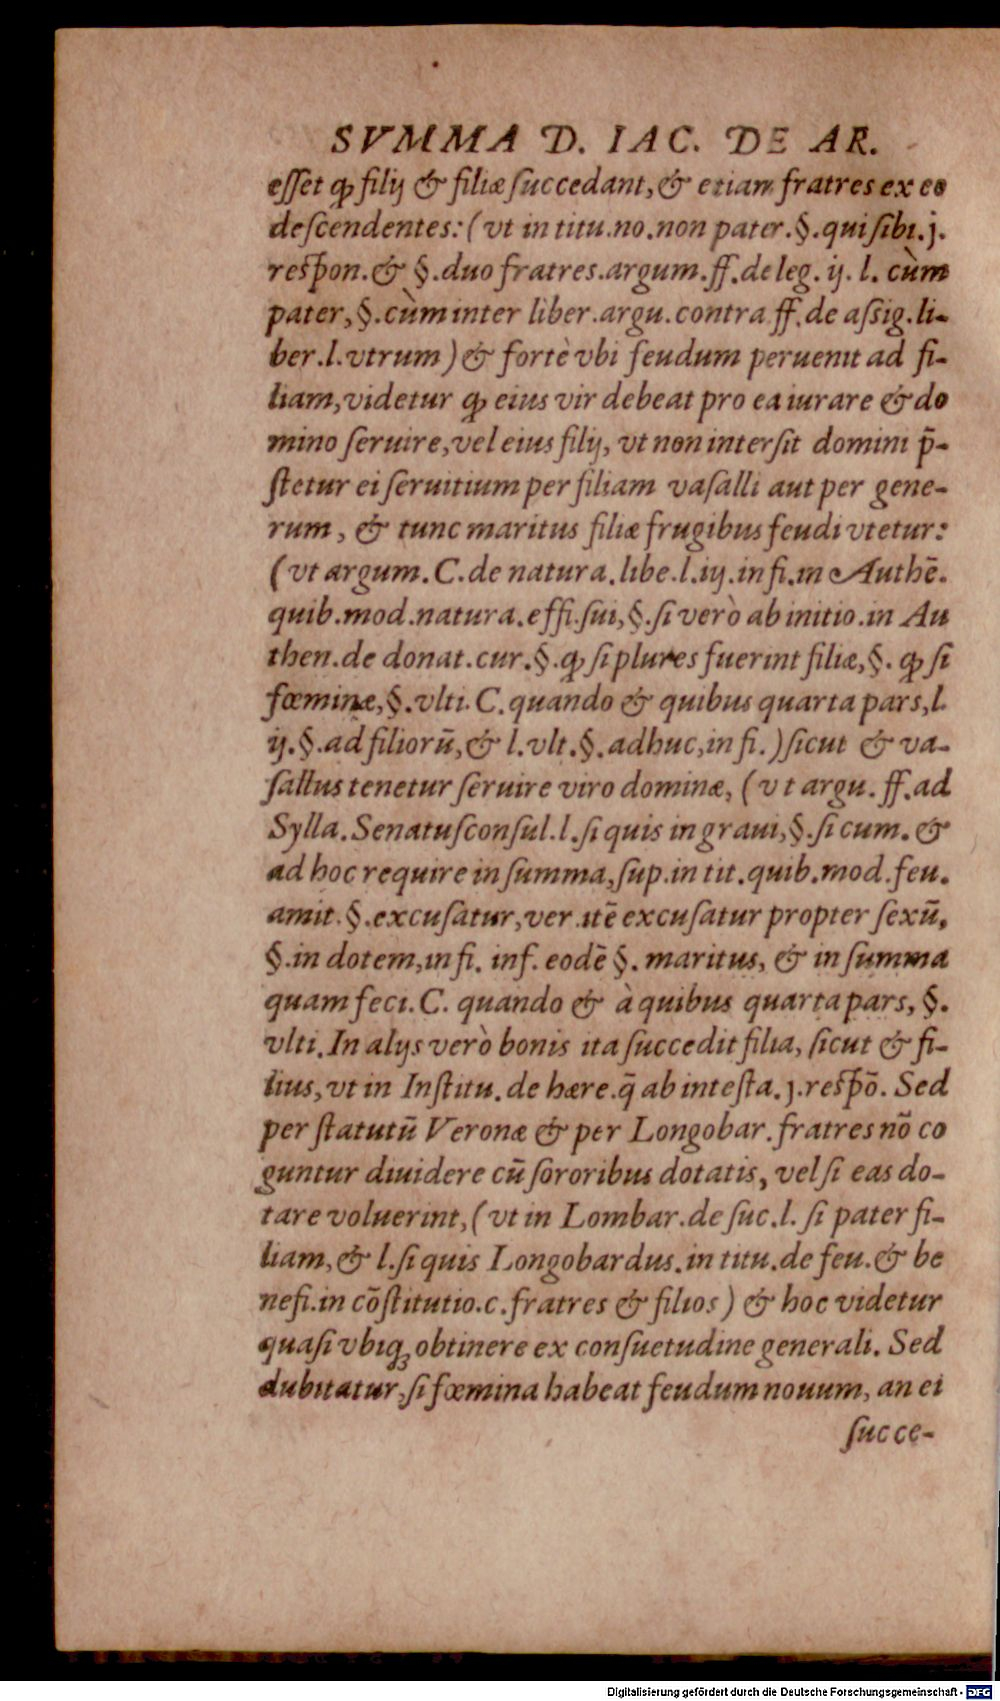 SVMMA D. IAC. DE AR.
eſſet ꝙ filij & filiæ ſuccedant, & etiam fratres ex eo
deſcendentes: (vt in titu. no. non pater. §. qui ſibi. j.
reſpon. & §. duo fratres. argum. ff. de leg. ij. l. cùm
pater, §. cùm inter liber. argu. contra ff. de aſsig. li-
ber. l. vtrum) & fortè vbi feudum peruenit ad fi-
liam, videtur ꝙ eius vir debeat pro ea iurare & do
mino ſeruire, vel eius filij, vt non interſit domini p̄-
ſtetur ei ſeruitium per filiam vaſalli aut per gene-
rum, & tunc maritus filiæ frugibus feudi vtetur:
(vt argum. C. de natura. libe. l. iij. in fi. in Authē.
quib. mod. natura. effi. ſui, §. ſi verò ab initio. in Au
then. de donat. cur. §. ꝙ ſi plures fuerint filiæ, §. ꝙ ſi
fœminæ, §. vlti. C. quando & quibus quarta pars, l.
ij. §. ad filiorū, & l. vlt. §. adhuc, in fi.) ſicut & va-
ſallus tenetur ſeruire viro dominæ, (vt argu. ff. ad
Sylla. Senatuſconſul. l. ſi quis in graui, §. ſi cum. &
ad hoc require in ſumma, ſup. in tit. quib. mod. feu.
amit. §. excuſatur, ver. itē excuſatur propter ſexū,
§. in dotem, in fi. inf. eodē §. maritus, & in ſumma
quam feci. C. quando & à quibus quarta pars, §.
vlti. In alijs verò bonis ita ſuccedit filia, ſicut & fi-
lius, vt in Inſtitu. de hære. q̄ ab inteſta. j. reſpō. Sed
per ſtatutū Veronæ & per Longobar. fratres nō co
guntur diuidere cū ſororibus dotatis, vel ſi eas do-
tare voluerint, (vt in Lombar. de ſuc. l. ſi pater fi-
liam, & l. ſi quis Longobardus. in titu. de feu. & be
nefi. in cōſtitutio. c. fratres & filios) & hoc videtur
quaſi vbiqꝫ obtinere ex conſuetudine generali. Sed
dubitatur, ſi fœmina habeat feudum nouum, an ei
ſucce-
Digitalisierung gefördert durch die Deutsche Forschungsgemeinschaft - DFG